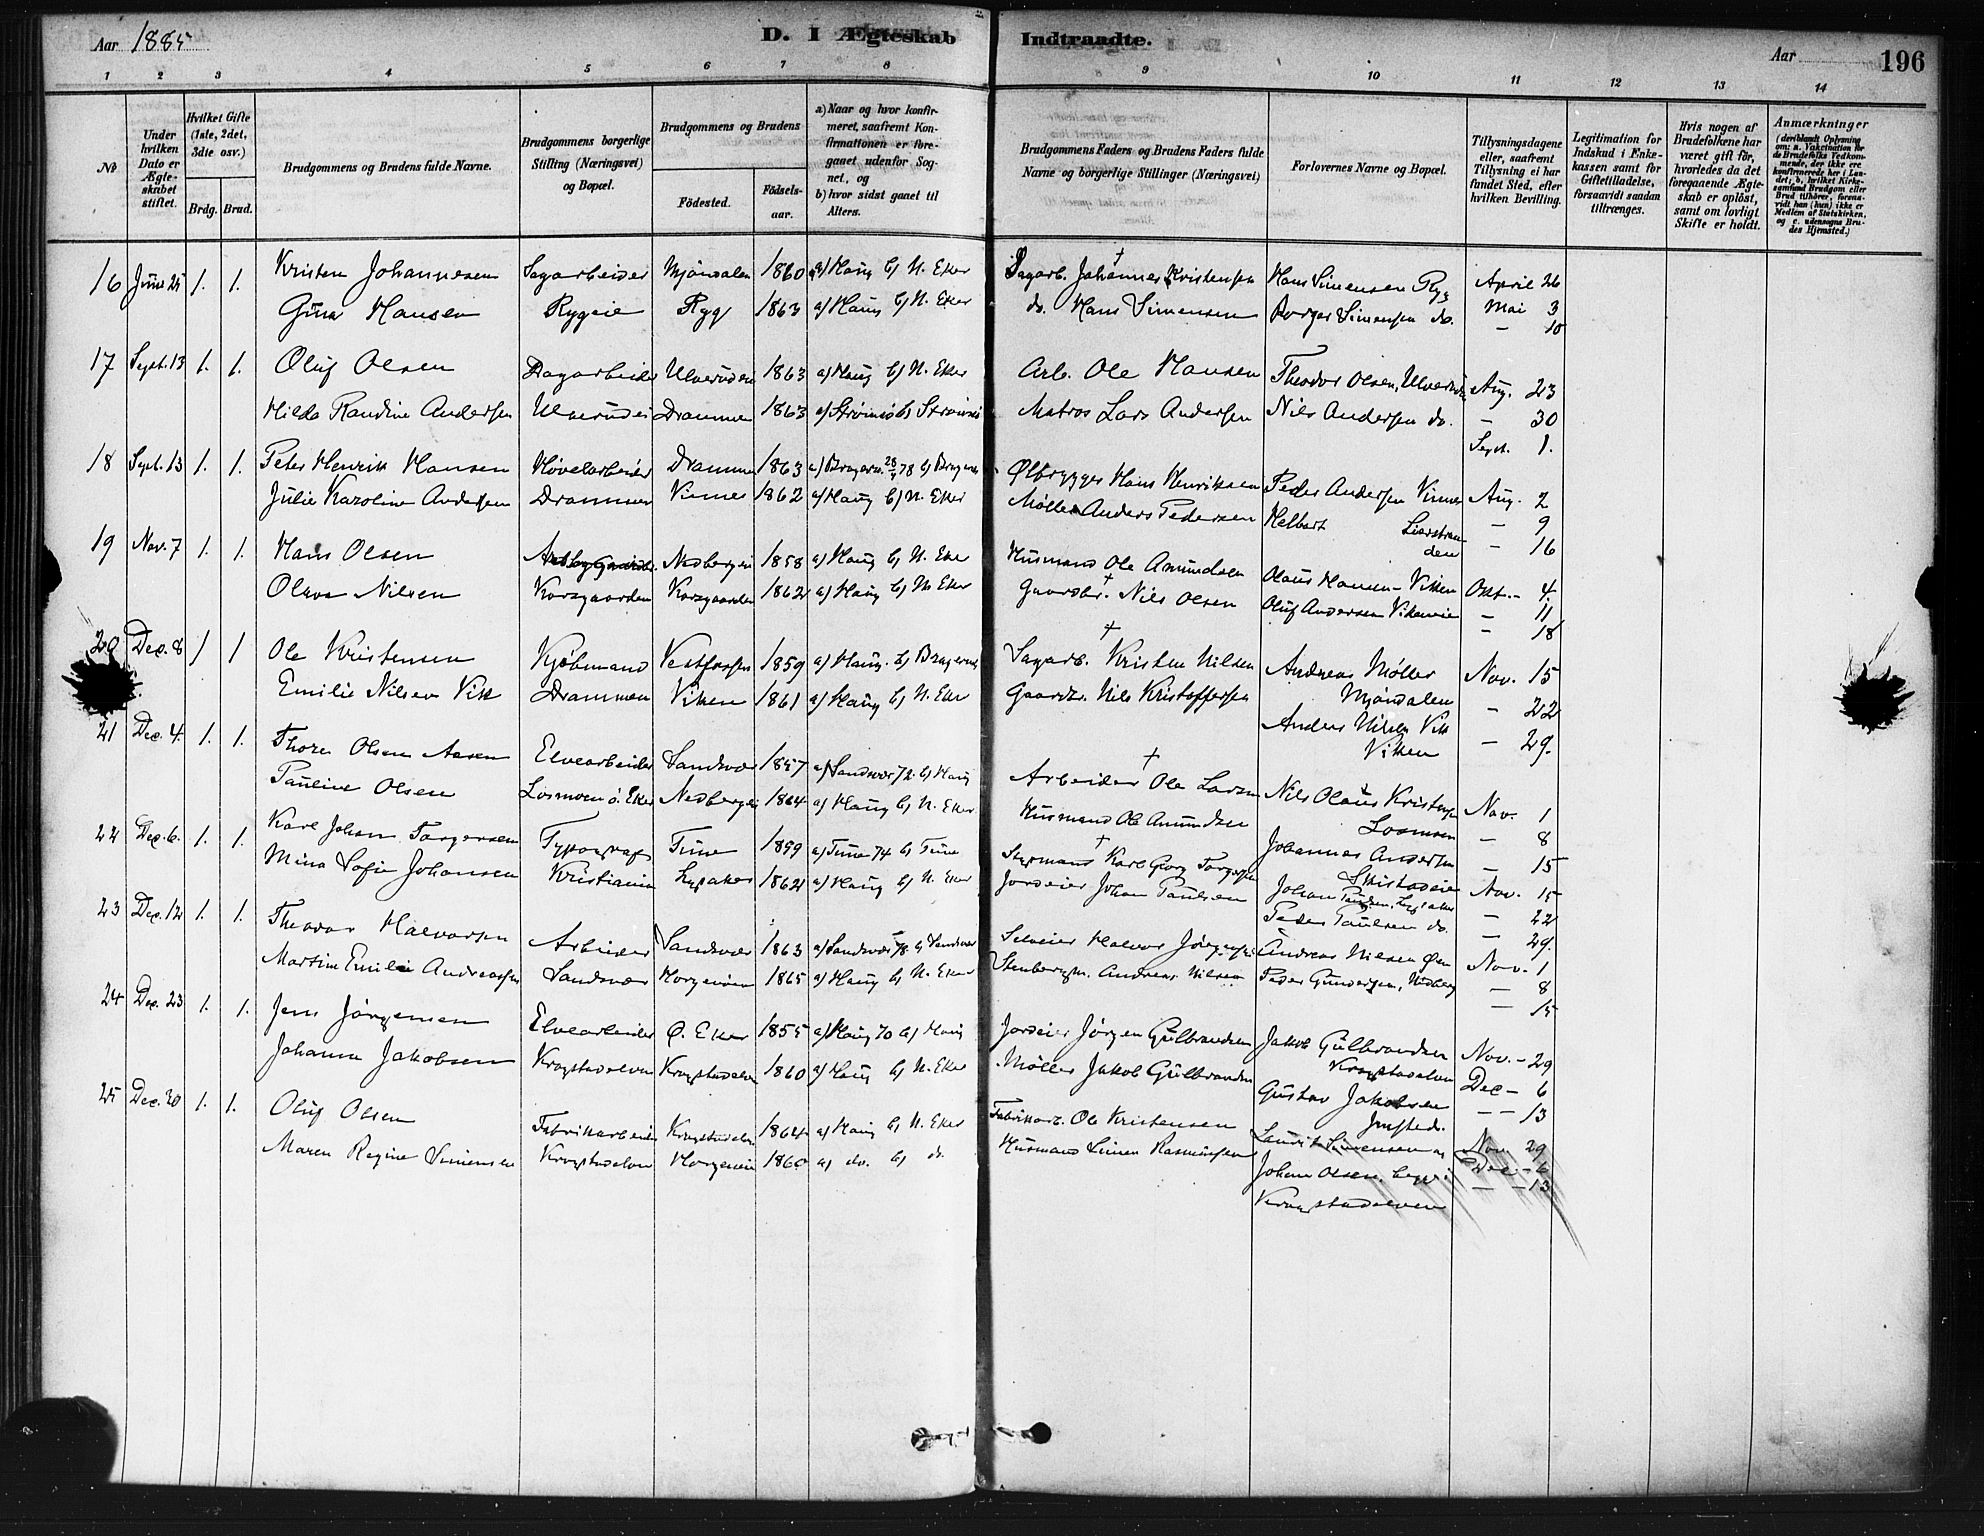 Aar 1885
D. I Ægteskab Indtraadte.
Aar
196
1 2 3 4 5 6 7 8 9 10 11 12 13 14
No
Under hvilken Dato er Ægteskabet stiftet.
Hvilket Gifte (1ste, 2det, 3die osv.)
Brdg. Brud.
Brudgommens og Brudens fulde Navne.
Brudgommens borgerlige Stilling (Næringsvei) og Bopæl.
Brudgommens og Brudens
Födested.
Födselsaar.
a) Naar og hvor konfirmeret, saafremt Konfirmationen er foregaaet udenfor Sognet, og
b) hvor sidst gaaet til Alters.
Brudgommens Faders og Brudens Faders fulde Navne og borgerlige Stillinger (Næringsvei)
Forlovernes Navne og Bopæl.
Tillysningsdagene eller, saafremt Tillysning ei har fundet Sted, efter hvilken Bevilling.
Legitimation for Indskud i Enkekassen samt for Giftetilladelse, forsaavidt saadan tiltrænges.
Hvis nogen af Brudefolkene har været gift för, hvorledes da det foregaaende Ægteskab er oplöst, samt om lovligt Skifte er holdt.
Anmærkninger
16 Juni 25 1. 1. Kristen Johannesen Sagarbeider Mjöndalen 1860 a) Haug b) N. Eker Sagarb. † Johannes Kristensen Hans Simensen Ryg April 26
Gina Hansen Rygeie Ryg 1863 a) Haug b) N. Eker do. Hans Simensen Borger Simensen do. Mai 3
— 10
17 Sept. 13 1. 1. Oluf Olsen Dagarbeider Ulverudei 1863 a) Haug b) N. Eker Arb. Ole Hansen Theodor Olsen, Ulverudei Aug. 23
Hilda Randine Andersen Ulverudei Drammen 1863 a) Strömsö b) Strömsö Matros Lars Andersen Nils Andersen do. — 30
Sept. 1.
18 Sept. 13 1. 1. Peter Henrik Hansen Hövelarbeider Drammen 1863 a) Bragernes 78 b) Bragernes Ølbrygger Hans Henriksen Peder Andersen Aug. 2
Julie Karoline Andersen Drammen 1862 a) Haug b) N. Eker Møller Anders Pedersen Lierstranden — 9
— 16
19 Nov. 7 1. 1. Hans Olsen Nedbergei 1858 a) Haug b) N. Eker Husmand Ole Amundsen Olaus Hansen Vikken Okt. - 4
Olava Nilsen Korsgaarden Korsgaarden 1862 a) Haug b) N. Eker Gaardbr. † Nils Olsen Oluf Andersen — 11
— 18
20 Dec. 8 1 1 Ole Kristensen Kjöbmand Vestfossen 1859 a) Haug. b) Bragernes Sagarb. † Kristen Nilsen Andreas Møller Nov. 15
Emilie Nilsen Vik Drammen Vikken 1861 a) Haug b) N. Eker Gaardbr. Nils Kristoffersen Mjøndalen — 22
Anders Nilsen Vik
Vikken — 29.
21 Dec. 4. 1. 1. Thore Olsen Aasen Elvearbeider Sandsvær 1857 a) Sandsvær 72 b) Haug Arbeider † Ole Larsen Nils Olaus Kristensen Nov. 1
Pauline Olsen Losmoen Ö. Eker Nedbergei 1864 a) Haug b) N. Eker Husmand Ole Amundsen Losmoen — 8
Johannes Andersen — 15
22 Dec. 6. 1. 1. Karl Johan Torgersen Typograf Tune 1859 a) Tune 74 b) Tune Styrmand † Karl Georg Torgersen Skistadeie Nov. 15
Mina Sofie Johansen Kristiania Lysaker 1862 a) Haug b) N. Eker Jordeier Johan Paulsen Johan Paulsen, Lysaker — 22
Peder Paulsen do. — 29.
23 Dec. 12 1. 1. Theodor Halvorsen Arbeider Sandsvær 1863 a) Sandsvær 78 b) Sandsvær Selveier Halvor Jörgensen Andreas Nilsen Nov. 1
Martine Emilie Andreassen Sandsvær Horgeneie 1865 a) Haug b) N. Eker Stenbergm. Andreas Nilsen Peder Gundersen, Nedberg — 8
— 15
24 Dec. 23 1. 1. Jens Jörgensen Elvearbeider Ö. Eker 1855 a) Haug 70 b) Haug Jordeier Jörgen Gulbrandsen Jakob Gulbrandsen Nov. - 29
Johanna Jakobsen Krogstadelven Krogstadelven 1860 a) Haug b) N. Eker Møller Jakob Gulbrandsen Krogstadelven Dec - 6
Gustav Jakobsen — 13
ibidem
25 Dec. 30 1. 1. Oluf Olsen Fabrikarbeider Krogstadelven 1864 a) Haug b) N. Eker Fabrikarb. Ole Kristensen Laurits Simensen og Nov 29
Maren Regine Simensen Krogstadelven Horgeneie 1860 a) do. b) do. Husmand Simen Rasmussen Johan Olsen, begge i Dec - 6
Krogstadelven — 13